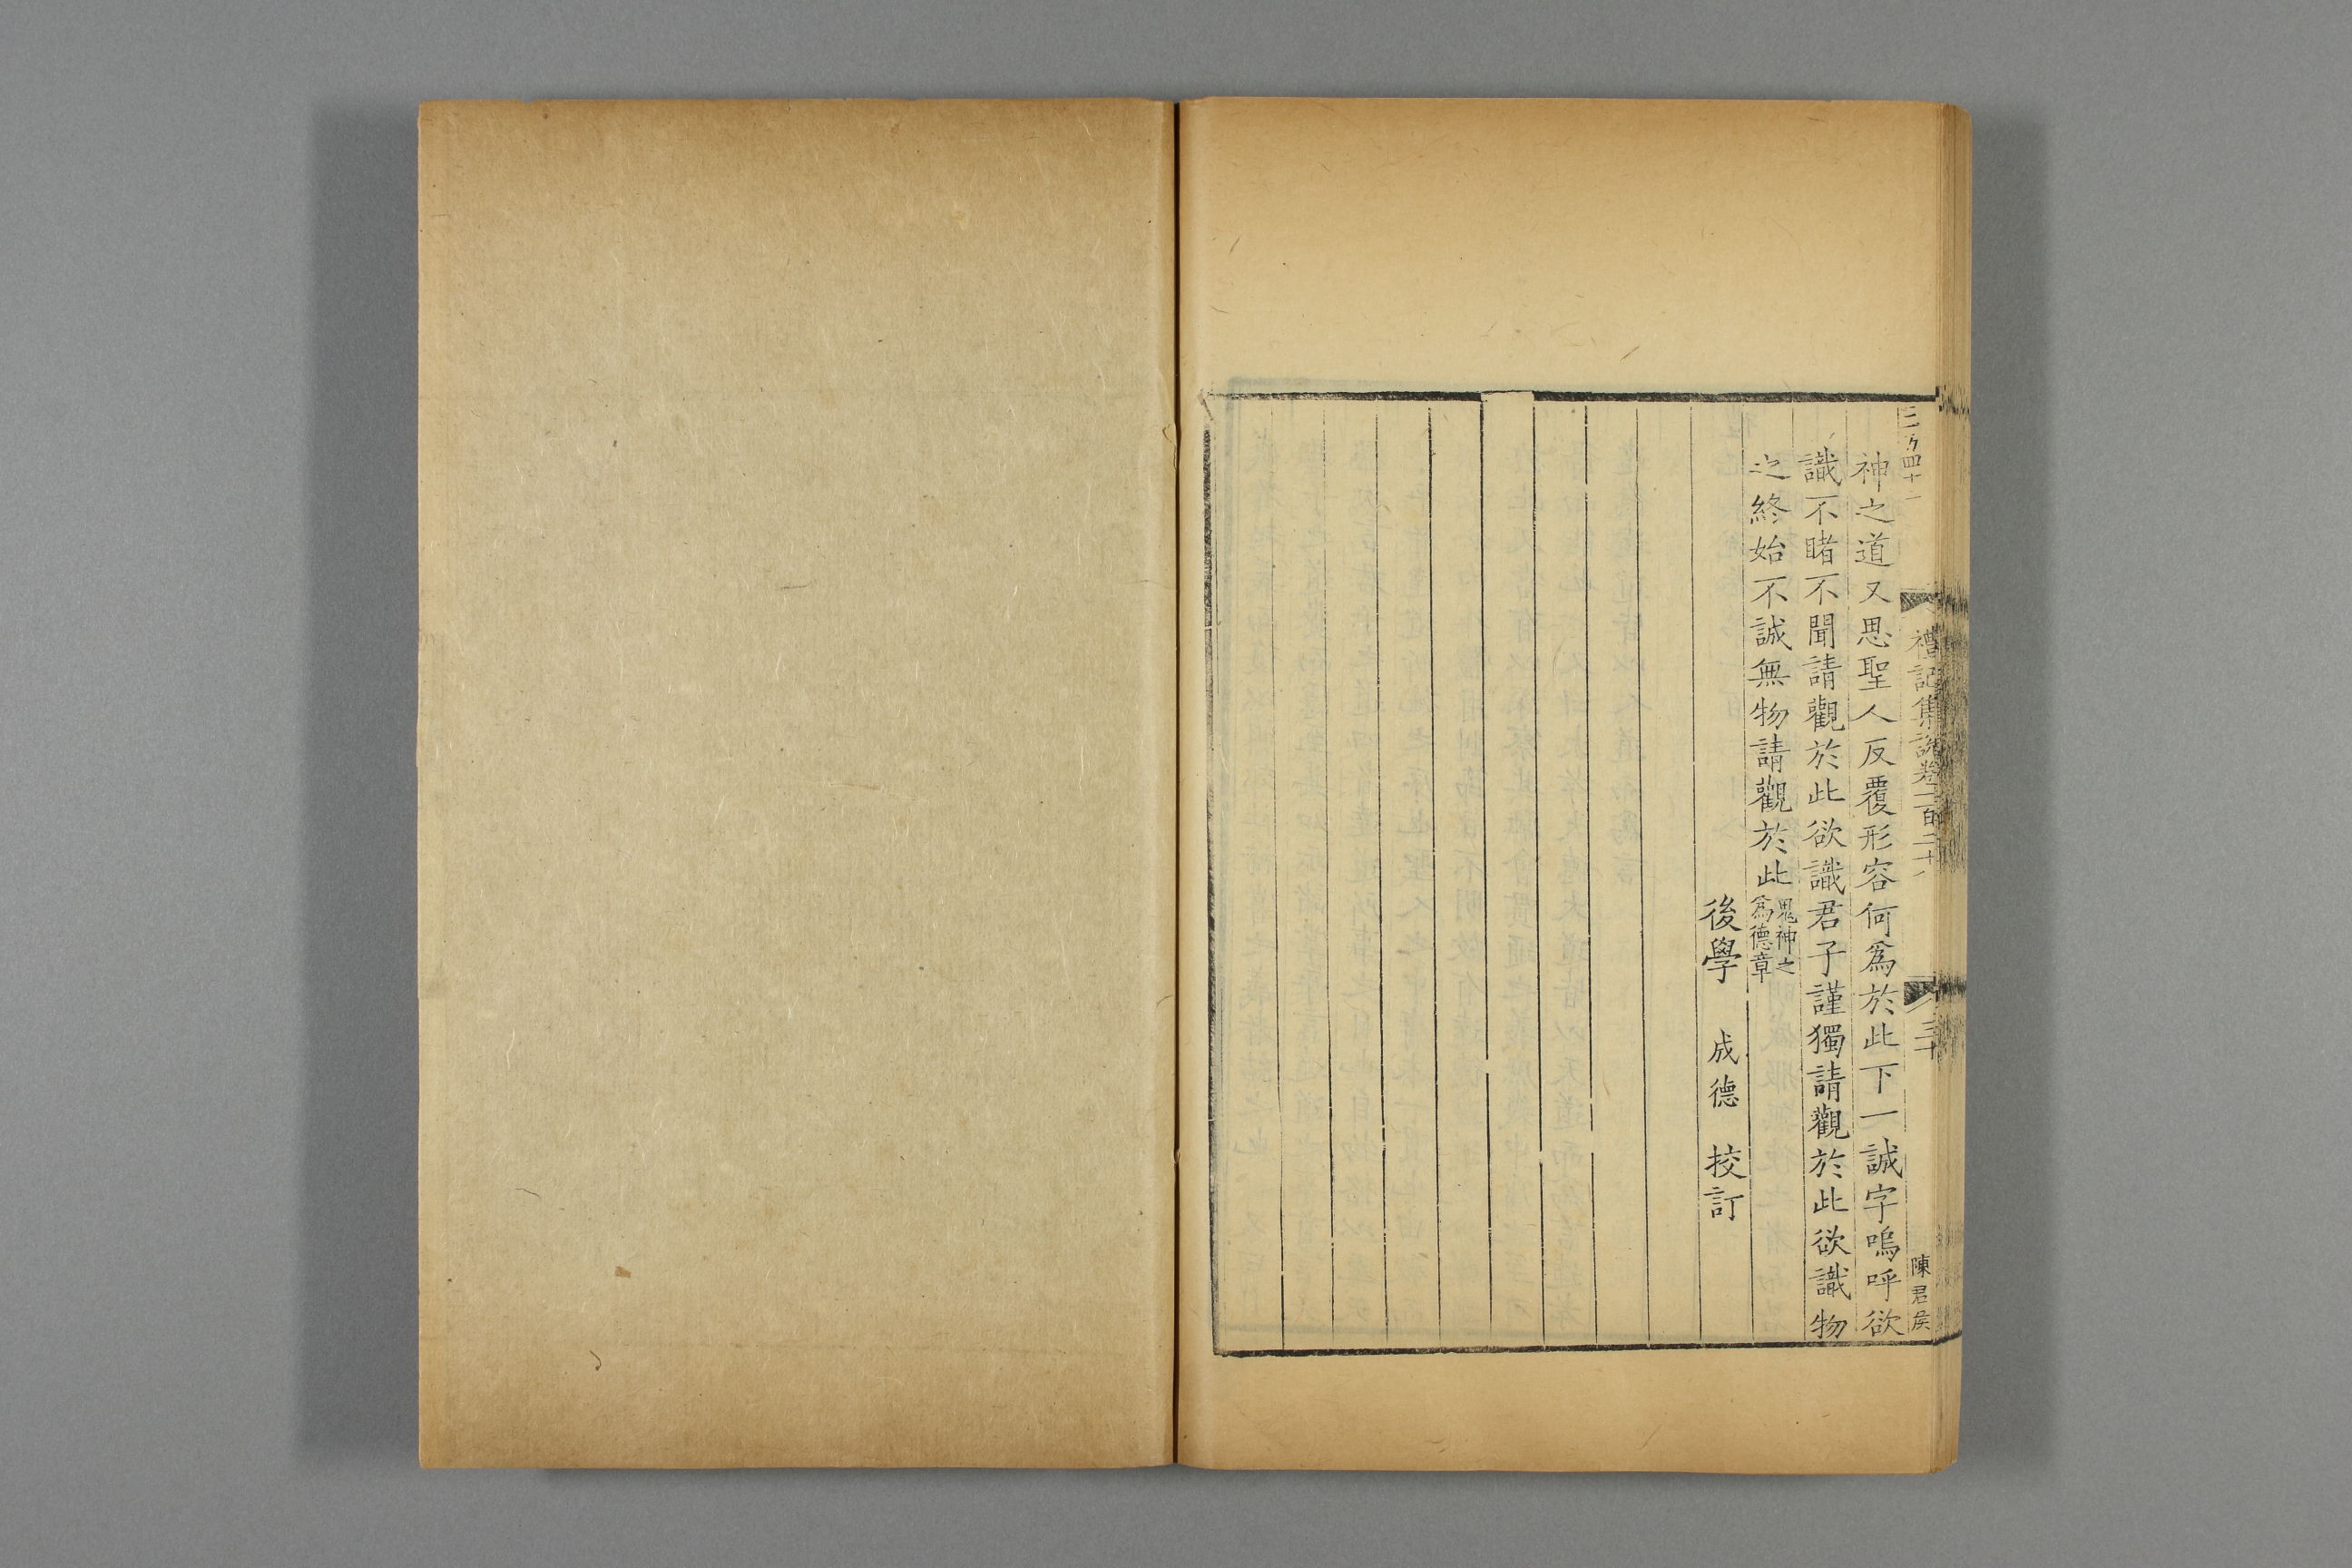 神之道又思聖人反覆形容何爲於此下一誠字嗚呼欲
識不睹不聞請觀於此欲識君子謹獨請觀於此欲識物
之終始不誠無物請觀於此鬼神之
爲德章
後學 成德 挍訂
禮記集說卷一百二十
三十
陳君侯